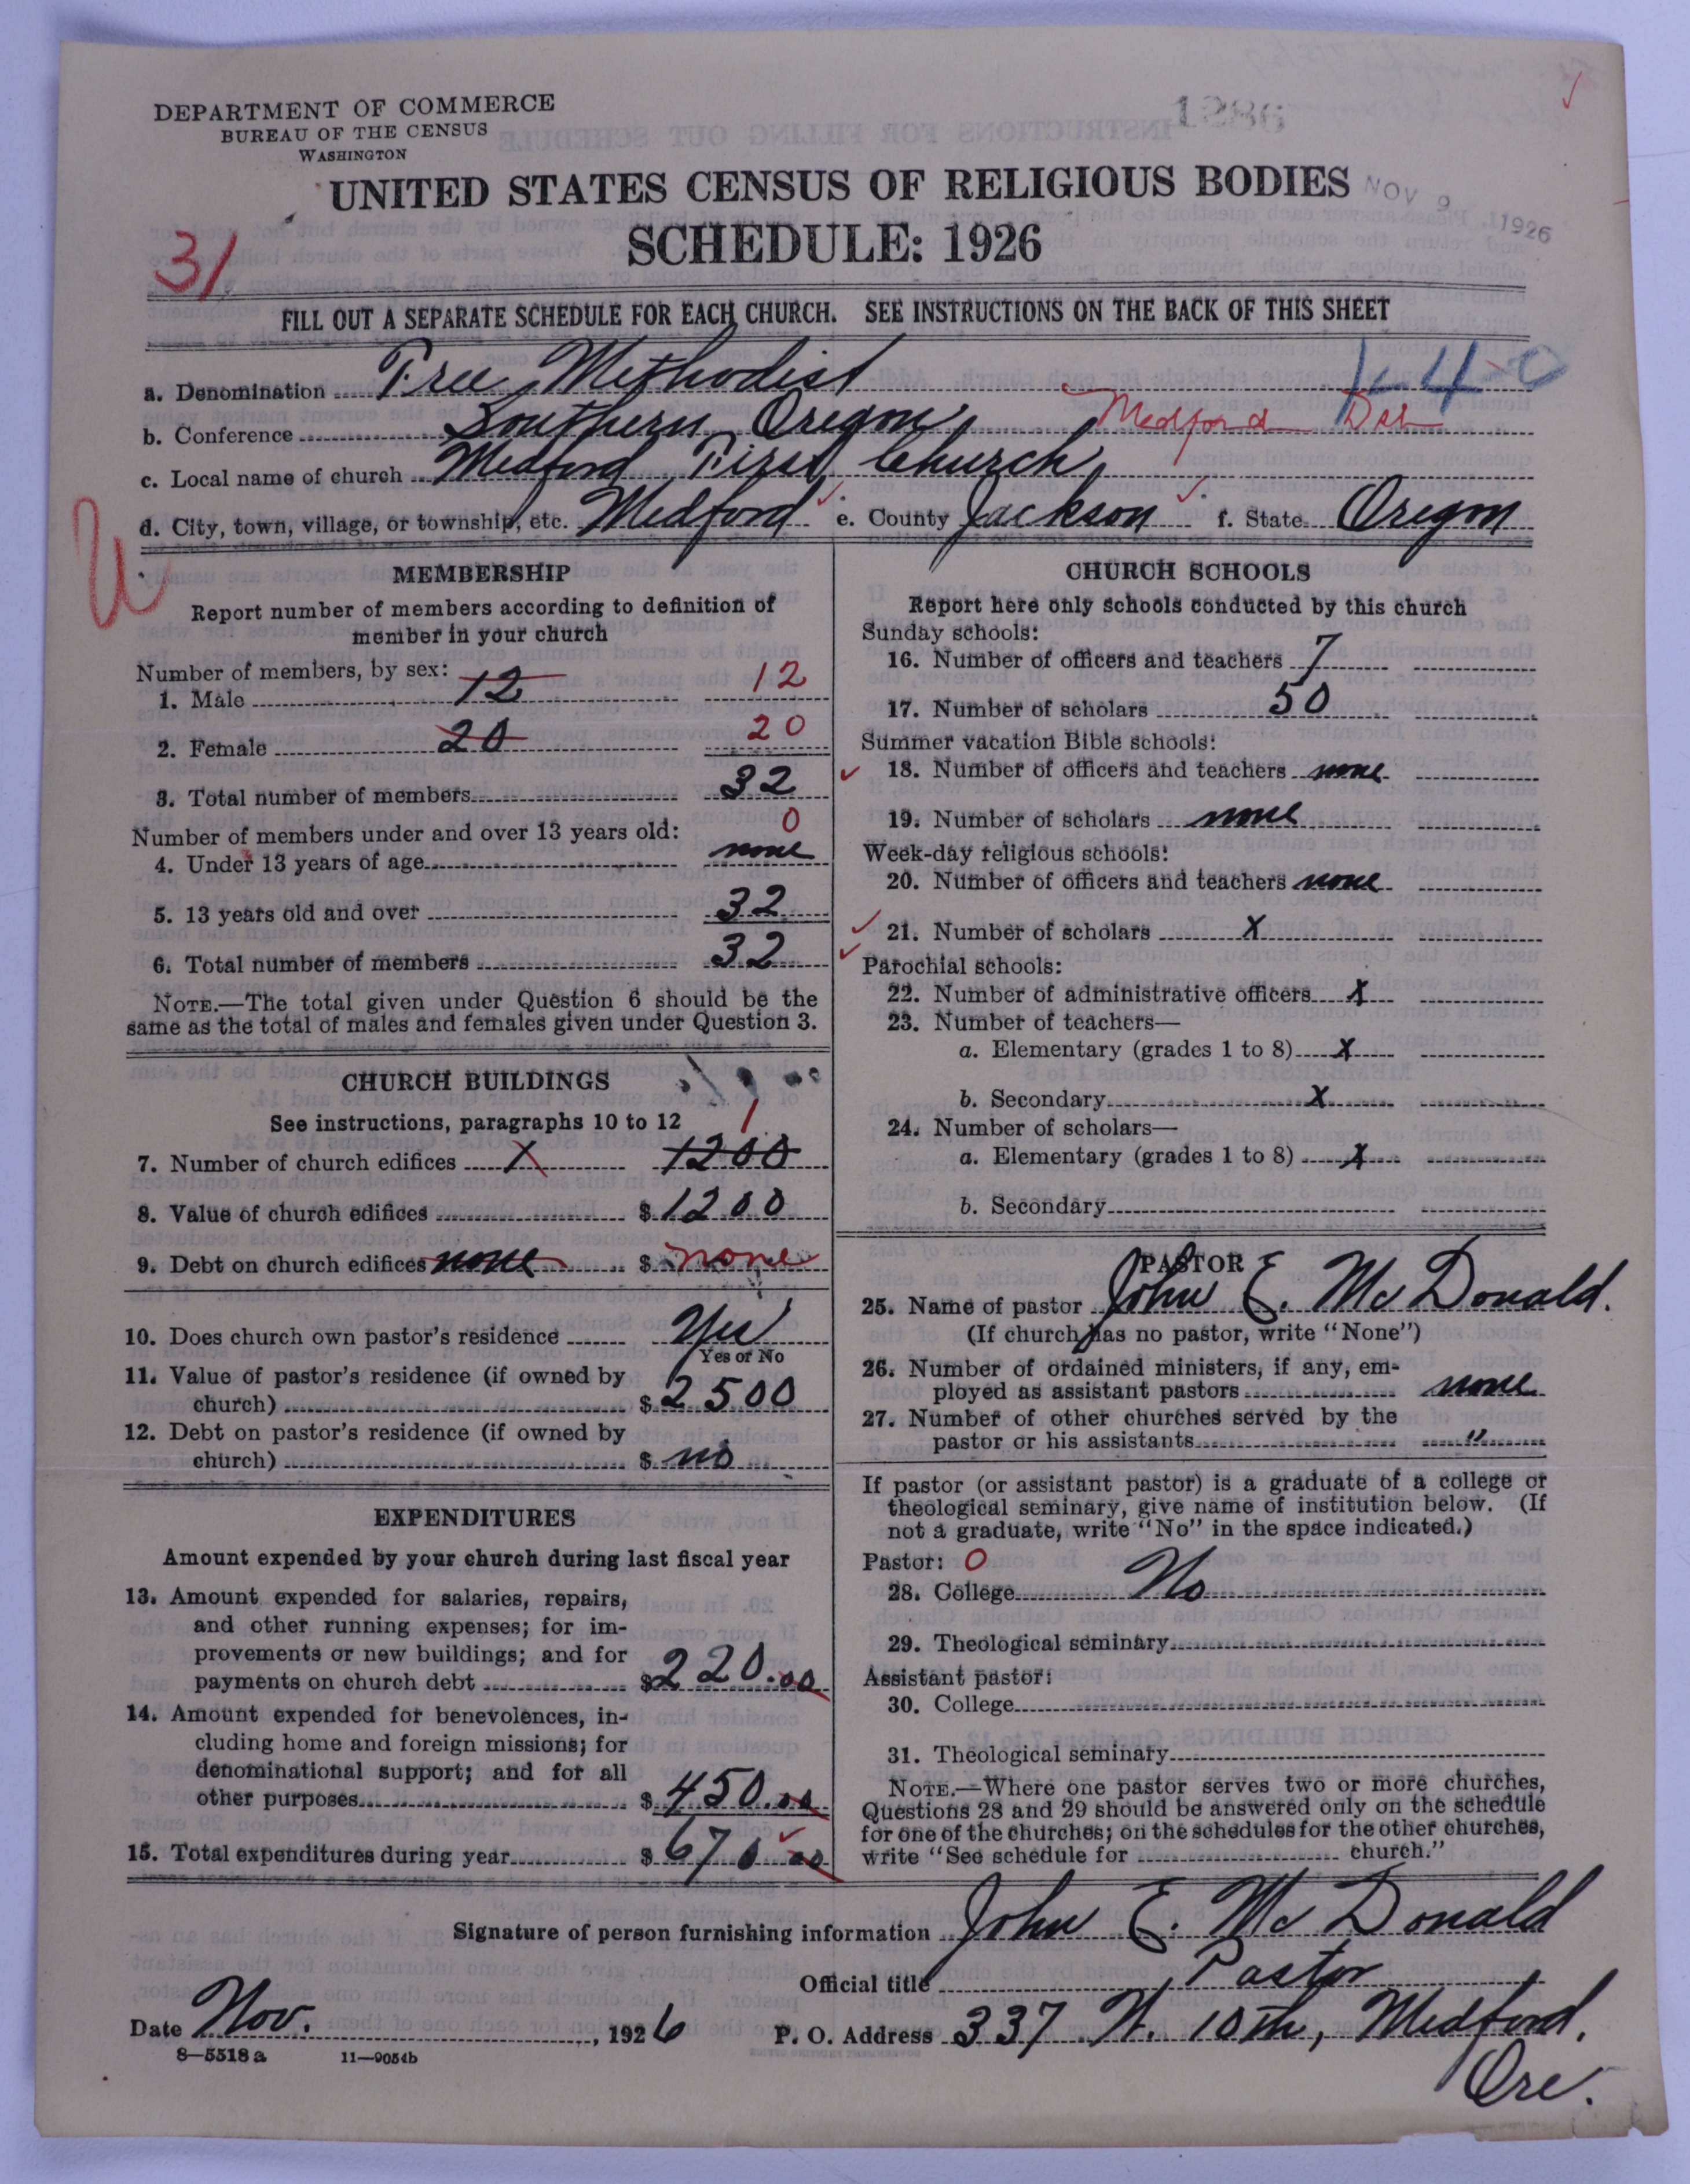 1286
DEPARTMENT OF COMMERCE
BUREAU OF THE CENSUS
WASHINGTON
UNITED STATES CENSUS OF RELIGIOUS BODIES
NOV 9 1926
SCHEDULE: 1926
31
FILL OUT A SEPARATE SCHEDULE FOR EACH CHURCH. SEE INSTRUCTIONS ON THE BACK OF THIS SHEET
1-4-0
a. Denomination Free Methodist
b. Conference Southern Oregon Medford Dist
c. Local name of church Medford First Church
d. City, town, village, or township, etc. Medford e. County Jackson f. State Oregon
U
MEMBERSHIP
Report number of members according to definition of
member in your church
Number of members, by sex:
1. Male 12 12
2. Female 20 20
3. Total number of members 32
Number of members under and over 13 years old: 0
4. Under 13 years of age none
5. 13 years old and over 32
6. Total number of members 32
NOTE.—The total given under Question 6 should be the
same as the total of males and females given under Question 3.
CHURCH BUILDINGS
See instructions, paragraphs 10 to 12 1
7. Number of church edifices X 1200
8. Value of church edifices $ 1200
9. Debt on church edifices none $ none
10. Does church own pastor's residence Yes
Yes or No
11. Value of pastor's residence (if owned by
church) $ 2500
12. Debt on pastor's residence (if owned by
church) $ no
EXPENDITURES
Amount expended by your church during last fiscal year
13. Amount expended for salaries, repairs,
and other running expenses; for im-
provements or new buildings; and for
payments on church debt $ 220.00
14. Amount expended for benevolences, in-
cluding home and foreign missions; for
denominational support; and for all
other purposes $ 450.00
15. Total expenditures during year $ 670 00
CHURCH SCHOOLS
Report here only schools conducted by this church
Sunday schools:
16. Number of officers and teachers 7
17. Number of scholars 50
Summer vacation Bible schools:
18. Number of officers and teachers none
19. Number of scholars none
Week-day religious schools:
20. Number of officers and teachers none
21. Number of scholars X
Parochial schools:
22. Number of administrative officers X
23. Number of teachers—
a. Elementary (grades 1 to 8) X
b. Secondary X
24. Number of scholars—
a. Elementary (grades 1 to 8) X
b. Secondary
PASTOR
25. Name of pastor John E. McDonald.
(If church has no pastor, write "None")
26. Number of ordained ministers, if any, em-
ployed as assistant pastors none
27. Number of other churches served by the
pastor or his assistants "
If pastor (or assistant pastor) is a graduate of a college or
theological seminary, give name of institution below. (If
not a graduate, write "No" in the space indicated.)
Pastor: 0
28. College No
29. Theological seminary
Assistant pastor:
30. College
31. Theological seminary
NOTE.—Where one pastor serves two or more churches,
Questions 28 and 29 should be answered only on the schedule
for one of the churches; on the schedules for the other churches,
write "See schedule for church."
Signature of person furnishing information John E. McDonald
Official title Pastor
Date Nov. , 1926 P. O. Address 337 W. 10th, Medford,
Ore.
8—5518 a 11—9054b